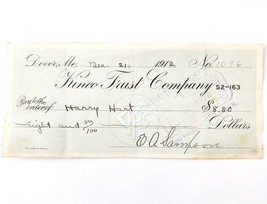 Dover, Me. Dec 21, 1912 No. 1096
Kineo Trust Company 52-163
Pay to the order of Harry Hart $8.80
Eight and 80/100 Dollars
O A Sampson